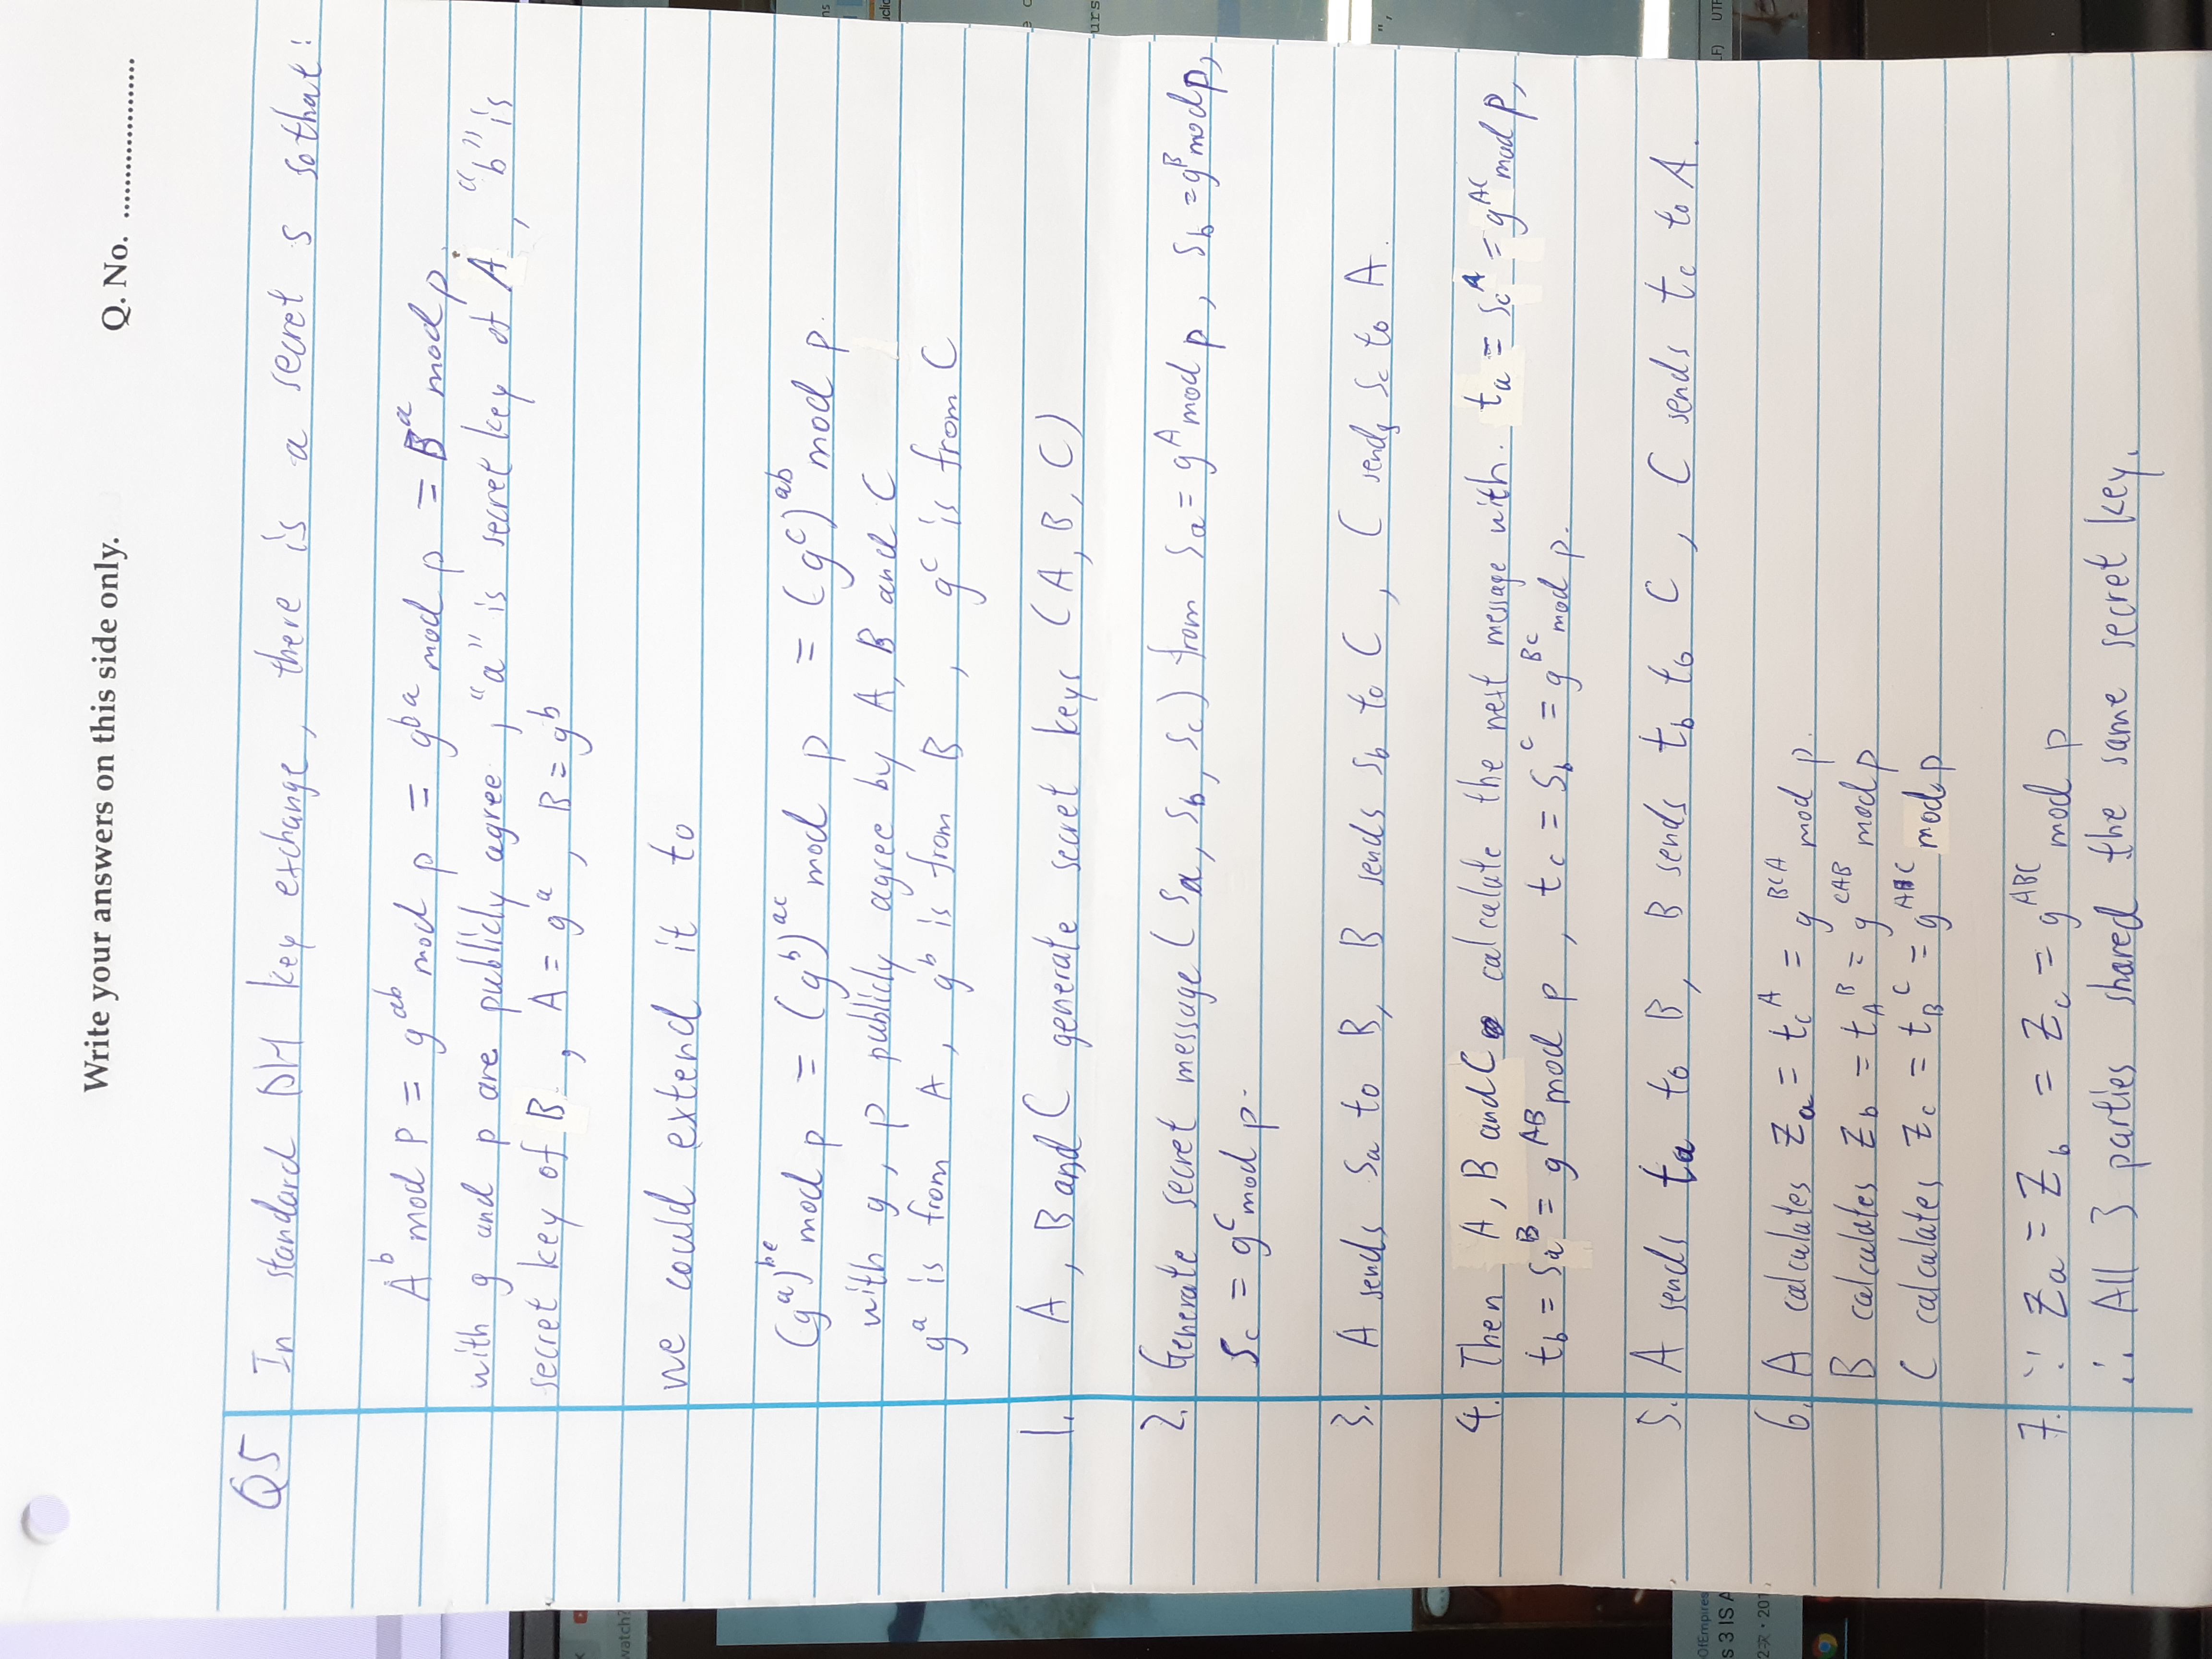 Write your answers on this side only.
Q. No. ......................
Q5 In standard DH key exchange, there is a secret s so that:
A^b mod p = g^ab mod p = g^ba mod p = B^a mod p.
with g and p are publicly agree, "a" is secret key of A, "b" is
secret key of B, A = g^a, B = g^b
we could extend it to
(g^a)^bc mod p = (g^b)^ac mod p = (g^c)^ab mod p.
with g, p publicly agree by A, B and C
g^a is from A, g^b is from B, g^c is from C
1. A, B and C generate secret keys (A, B, C)
2. Generate secret message (Sa, Sb, Sc) from Sa = g^A mod p, Sb = g^B mod p,
Sc = g^C mod p.
3. A sends Sa to B, B sends Sb to C, C sends Sc to A.
4. Then A, B and C calculate the next message with. ta = Sc^A = g^AC mod p,
tb = Sa^B = g^AB mod p, tc = Sb^C = g^BC mod p.
5. A sends ta to B, B sends tb to C, C sends tc to A.
6. A calculates Za = tc^A = g^BCA mod p.
B calculates Zb = tA^B = g^CAB mod p
C calculates Zc = tB^C = g^ABC mod p
7. ∵ Za = Zb = Zc = g^ABC mod p
∴ All 3 parties shared the same secret key.
watch?
OfEmpires
s 3 IS A
urs
LF)
UTF